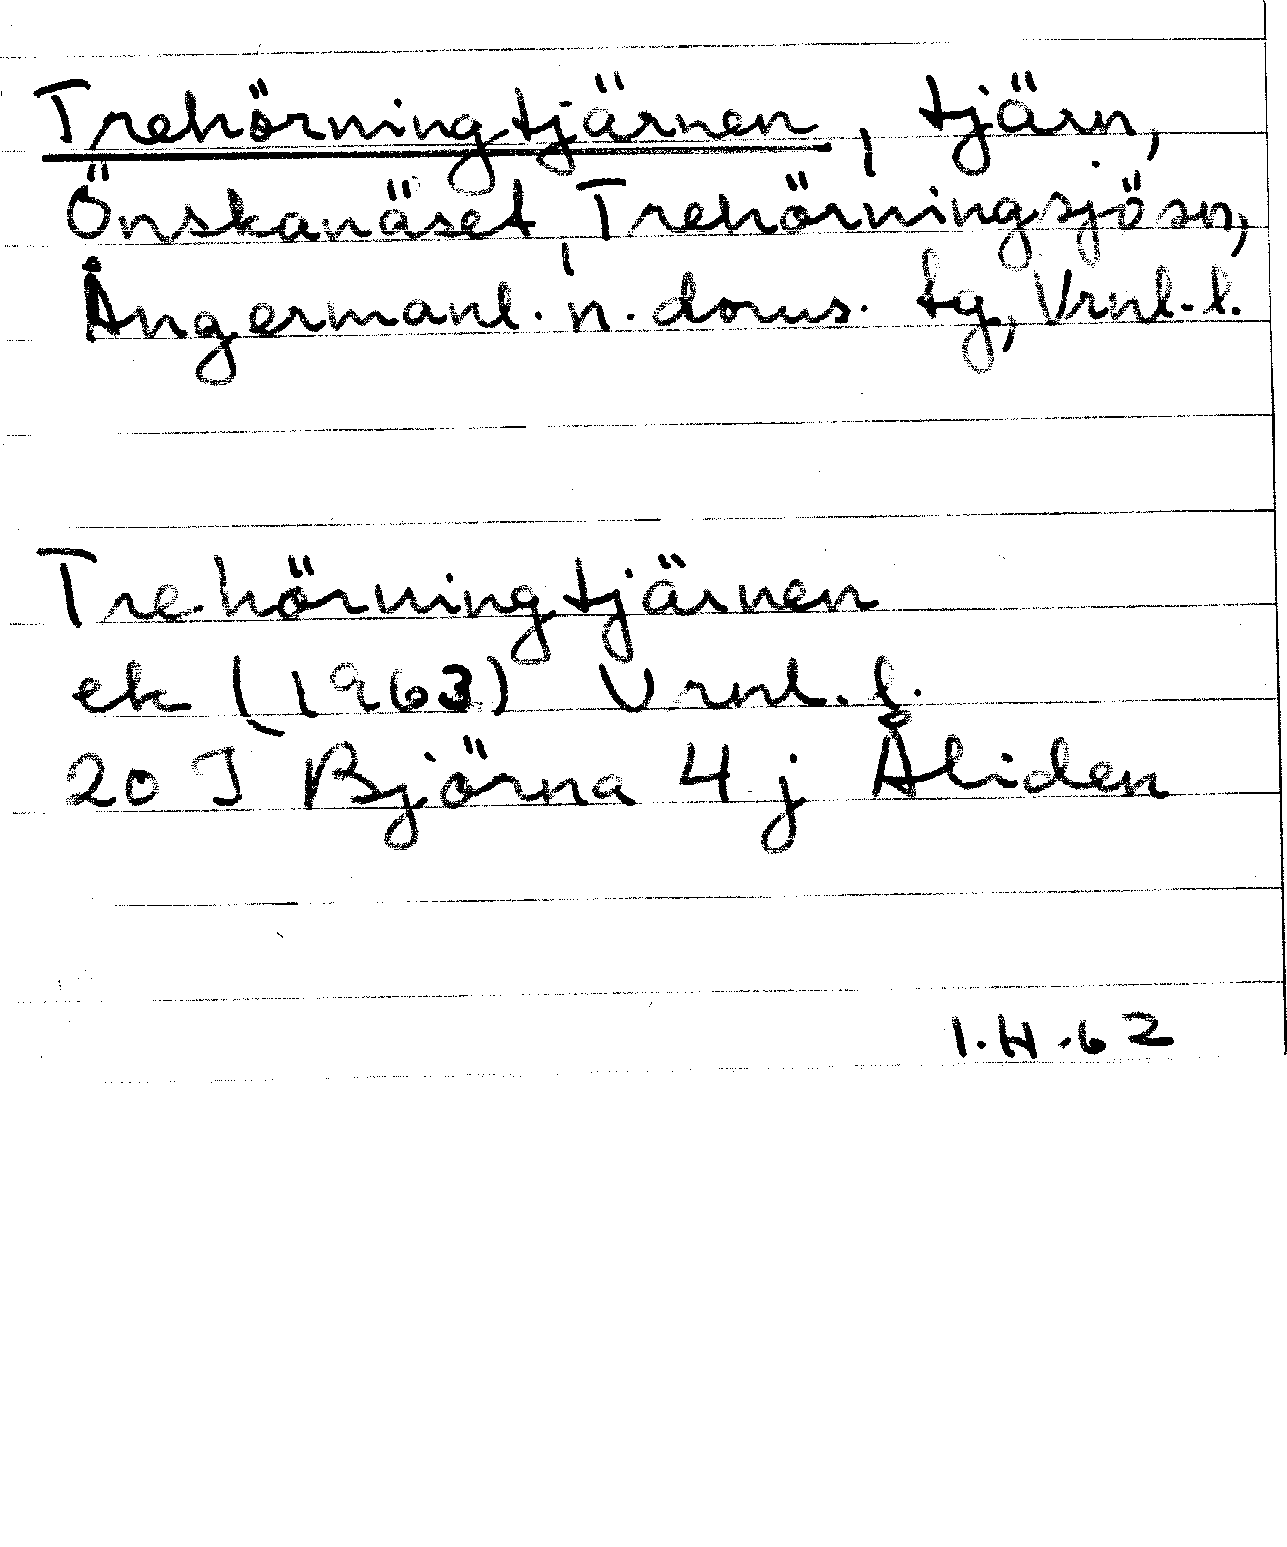 Trehörningtjärnen, tjärn,
Önskanäset, Trehörningsjö sn,
Ångermanl. n. doms. tg, Vrnl. l.
Trehörningtjärnen
ek (1963) Vrnl. l.
20 J Björna 4 j Åliden
I.H.62